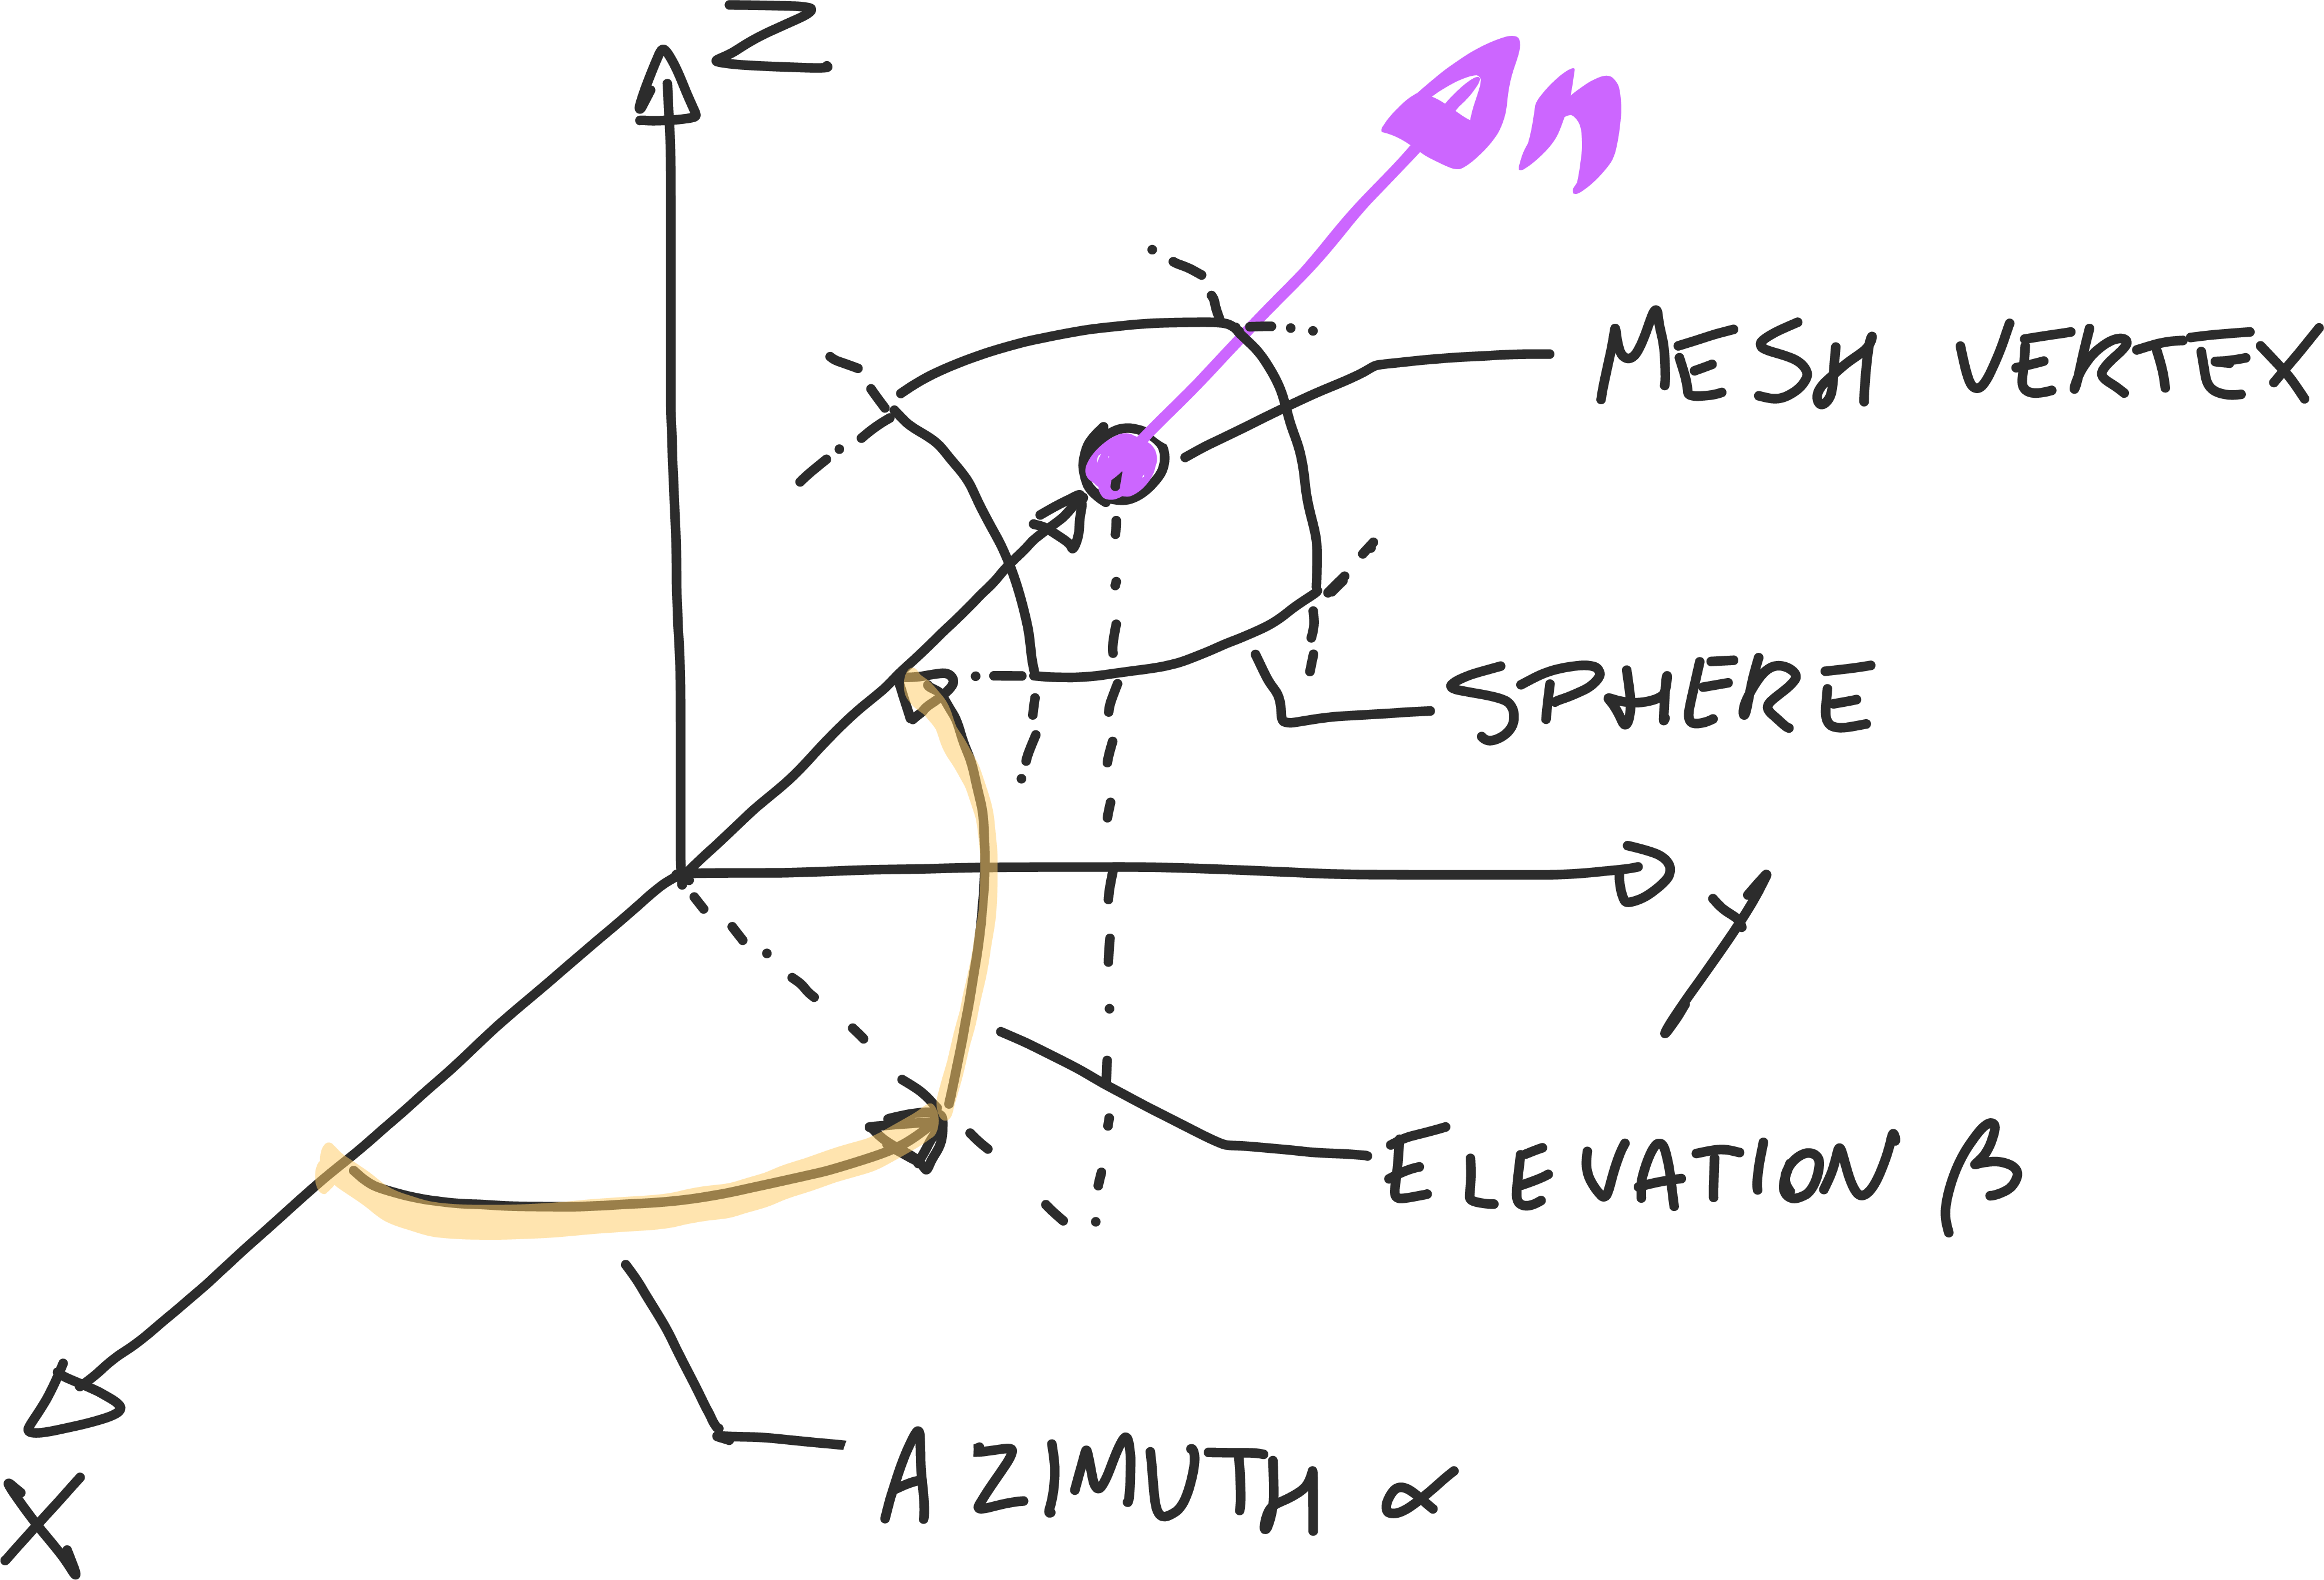 Z
n
MESH VERTEX
SPHERE
y
ELEVATION β
AZIMUTH α
X